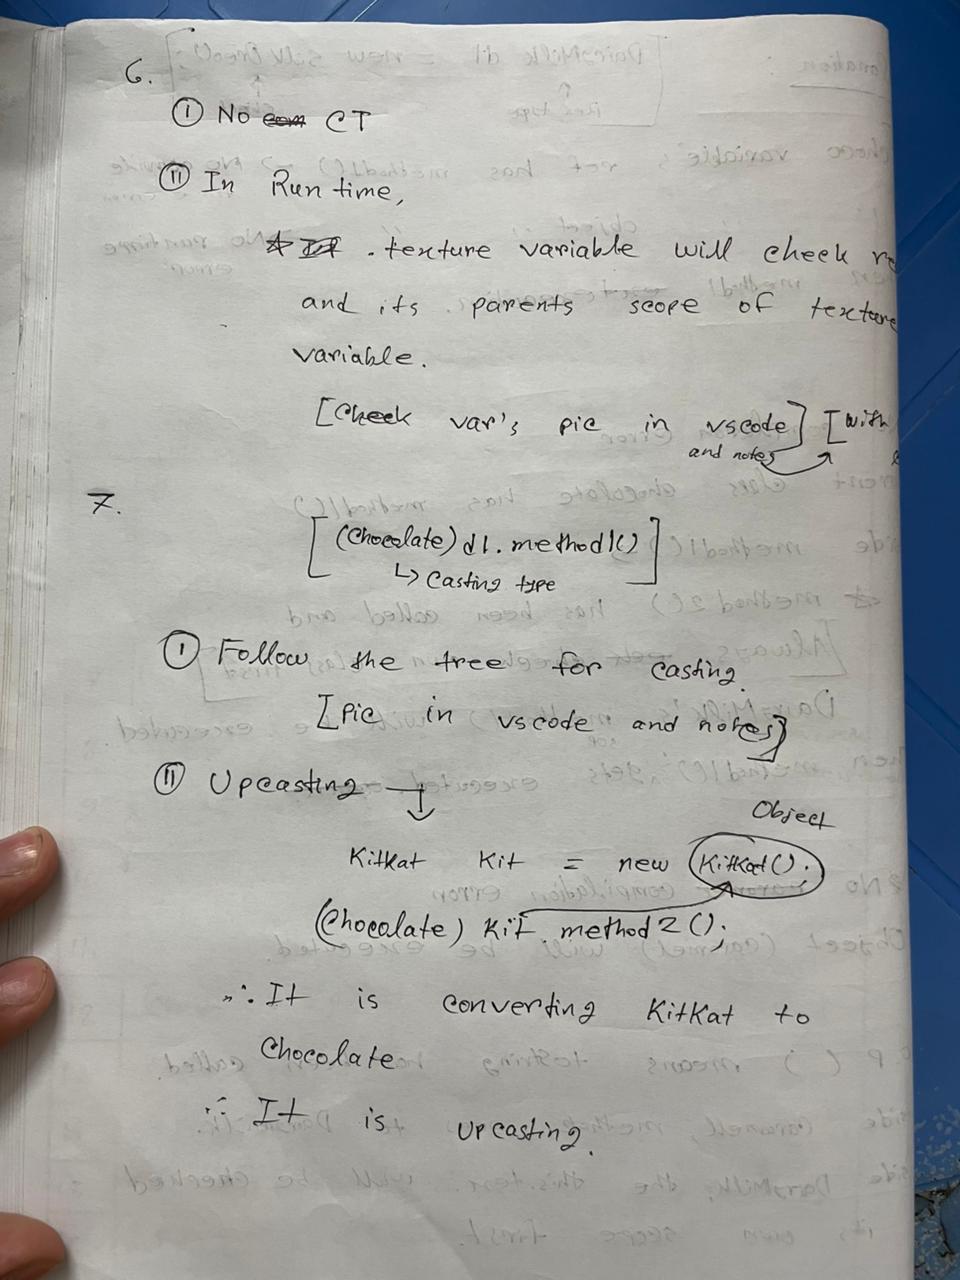 6.
(I) No CT
(II) In Run time,
. texture variable will check
and its parents scope of texture
variable.
[Check var's pic in vscode] [with
and notes
7.
[(Chocolate) d1. method1()]
↳ Casting type
(I) Follow the tree for casting.
[Pic in vscode and notes]
(II) Upcasting
Object
KitKat Kit = new KitKat().
(Chocolate) Kit method2();
∴ It is converting KitKat to
Chocolate
∴ It is upcasting.